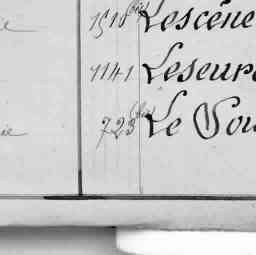 1510(bis) Lescène
1141 Leseur
723(bis) Le Sou